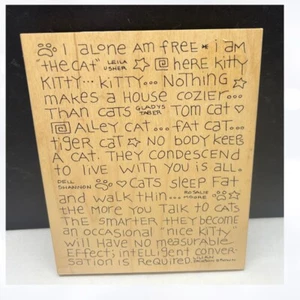 I ALONE AM FREE I AM
"THE CAT" LEILA USHER HERE KITTY
KITTY... KITTY... NOTHING
MAKES A HOUSE COZIER...
THAN CATS GLADYS TABER TOM CAT
ALLEY CAT... FAT CAT...
TIGER CAT NO BODY KEEPS
A CAT. THEY CONDESCEND
TO LIVE WITH YOU IS ALL.
DELL SHANNON CATS SLEEP FAT
AND WALK THIN... ROSALIE MOORE
THE MORE YOU TALK TO CATS
THE SMARTER THEY BECOME
AN OCCASIONAL "NICE KITTY"
WILL HAVE NO MEASURABLE
EFFECT; INTELLIGENT CONVER-
SATION IS REQUIRED.